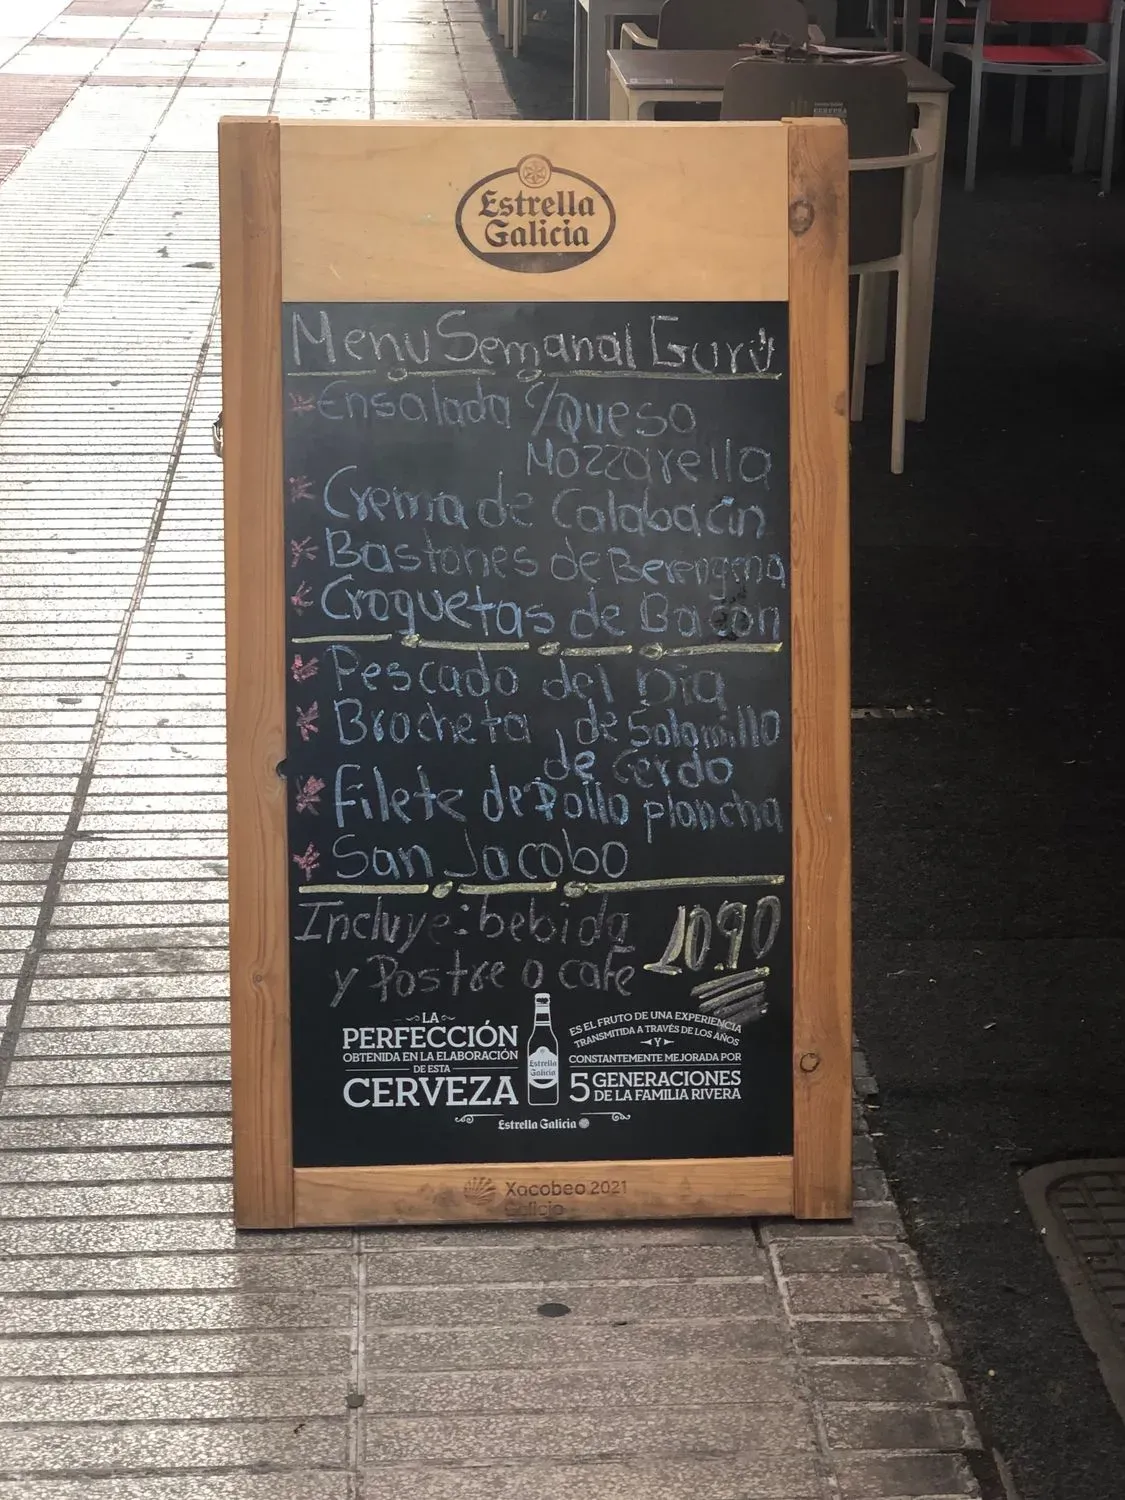 Estrella
Galicia
Menu Semanal Gurú
Ensalada c/Queso
Mozzarella
Crema de Calabacín
Bastones de Berengena
Croquetas de Bacon
Pescado del Dia
Brocheta de Solomillo
de Cerdo
Filete de Pollo plancha
San Jacobo
Incluye: bebida
y Postre o cafe
10.90
LA
PERFECCIÓN
OBTENIDA EN LA ELABORACIÓN
DE ESTA
CERVEZA
Estrella
Galicia
ES EL FRUTO DE UNA EXPERIENCIA
TRANSMITIDA A TRAVÉS DE LOS AÑOS
Y
CONSTANTEMENTE MEJORADA POR
5 GENERACIONES
DE LA FAMILIA RIVERA
Estrella Galicia
Xacobeo 2021
Galicia